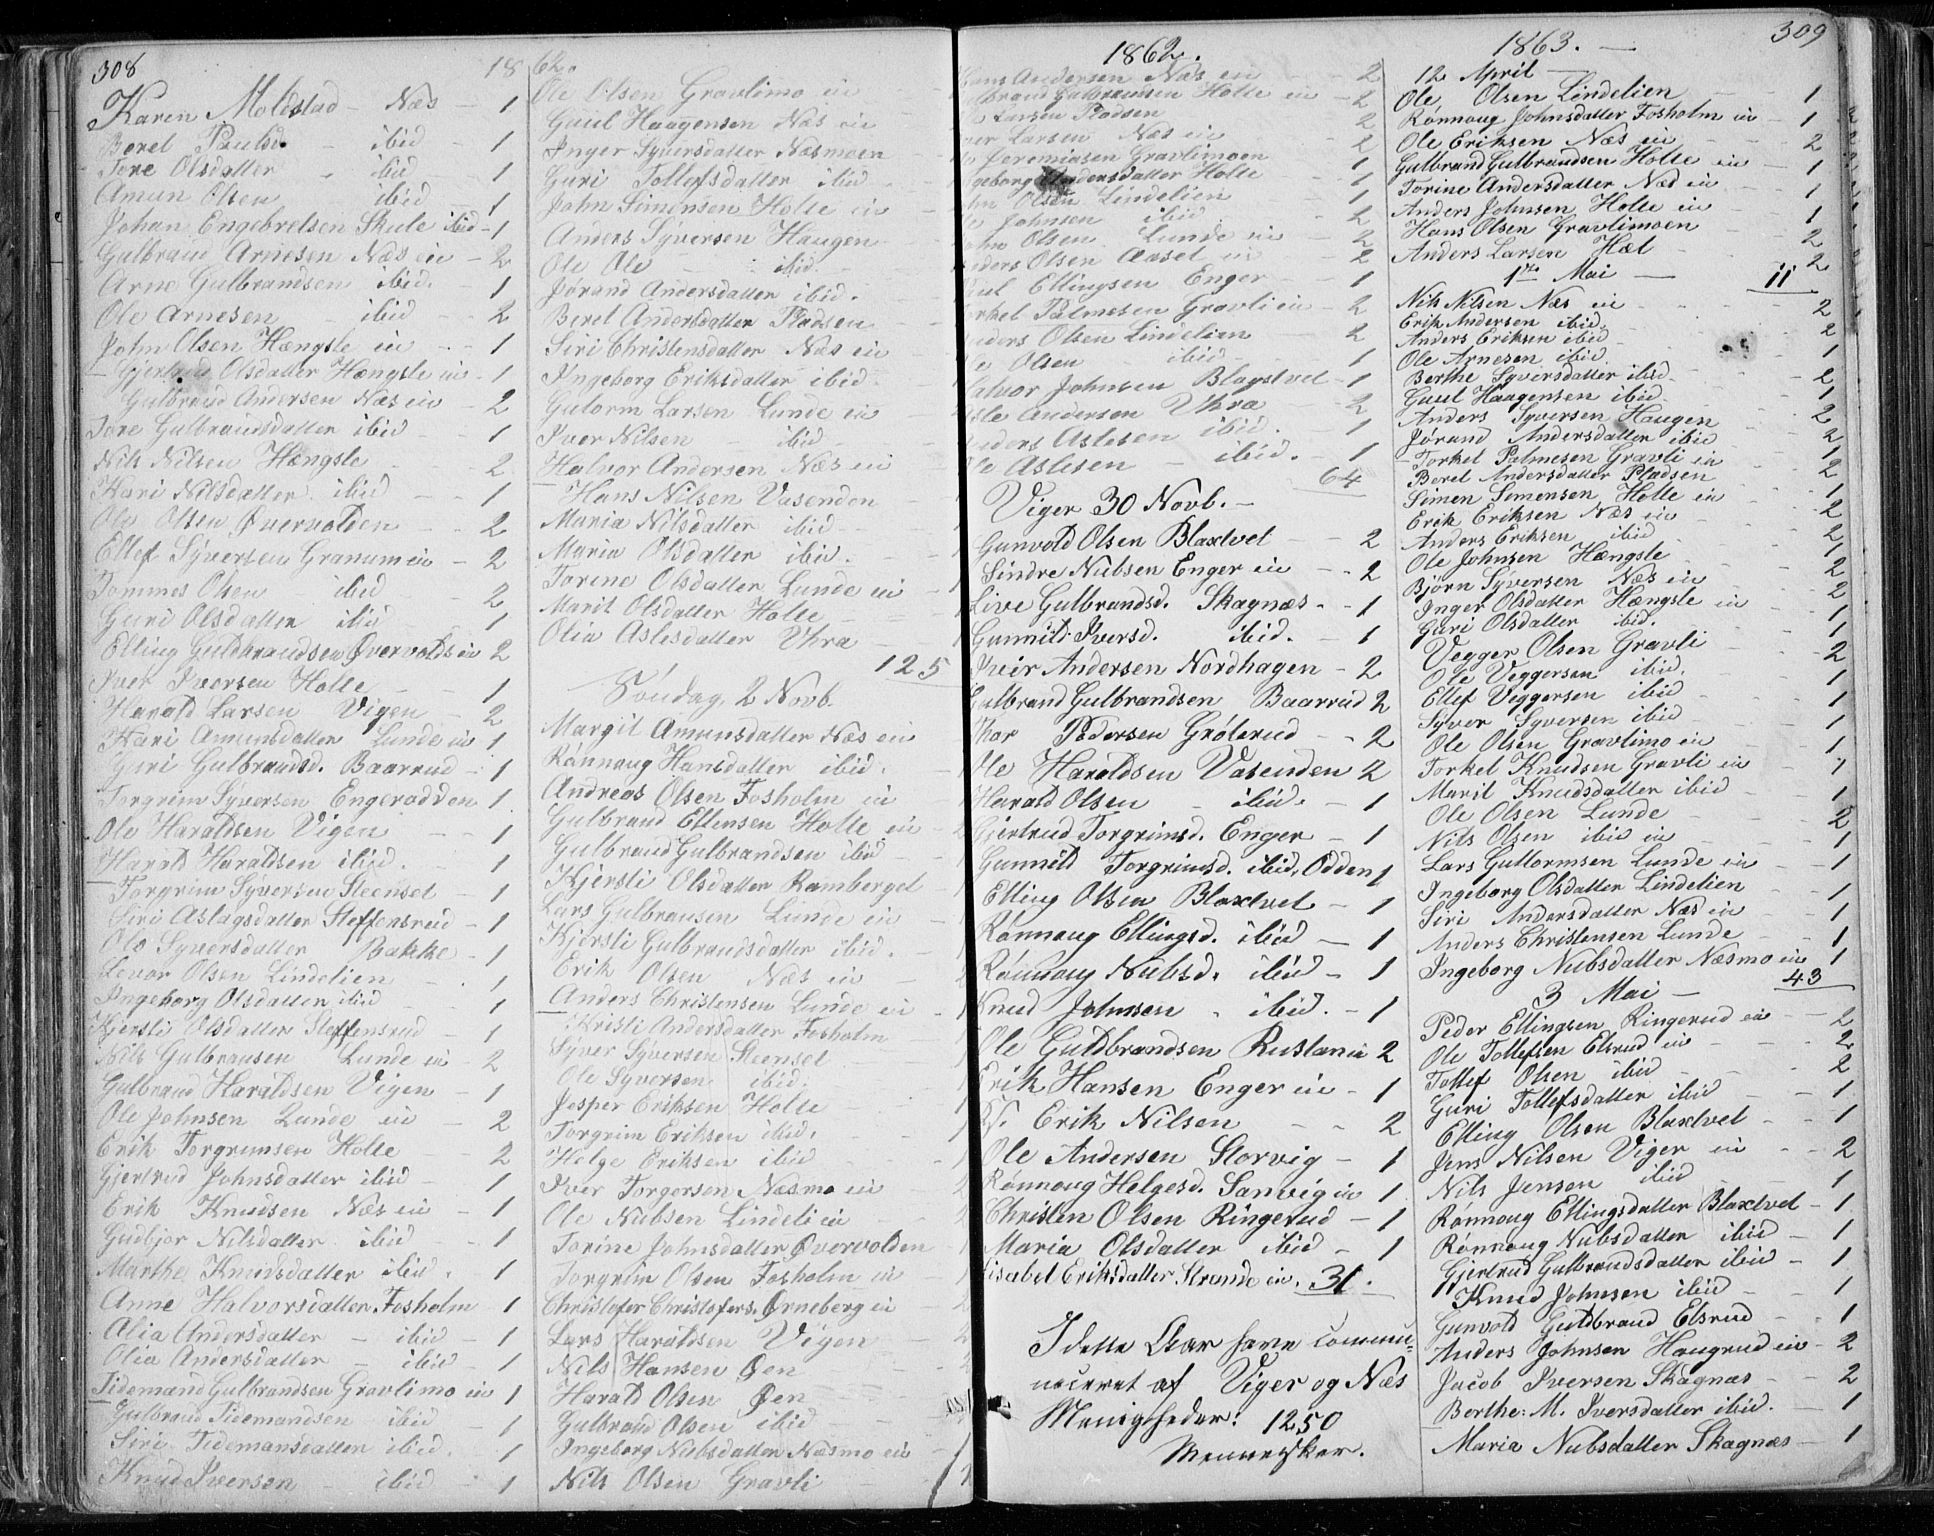 308
18
Karen Moldstad - Næs - 1
Beret Paulsd. - ibid - 1
Tore Olsdatter - ibid - 1
Amun Olsen ibid - 1
Johan Engebretsen Skule ibid - 1
Gulbrand Arnesen Næs eie - 2
Arne Gulbrandsen ibid. - 1
Ole Arnesen ibid - 2
John Olsen Hængsle eie - 1
Gjertrud Olsdatter Hængsle eie - 1
Gulbrand Andersen Næs eie - 2
Tore Gulbrandsdatter ibid - 1
Nils Nilsen Hængsle 2
Kari Nilsdatter ibid - 1
Ole Olsen Øvervolden - 2
Ellef Syversen Granum eie - 2
Tommes Olsen ibid - 2
Guri Olsdatter ibid - 1
Elling Guldbrandsen Øvervolds eie 2
Iver Iversen Holte - 1
Harald Larsen Vigen - 2
Kari Amunsdatter Lunde eie 1
Guri Gulbrandsd. Baarrud - 1
Torgrim Syversen Engerodden 1
Ole Haraldsen Vigen - 1
Harald Haraldsen ibid. - 1
Torgrim Syversen Steenset - 1
Siri Aslagsdatter Steffensrud - 1
Ole Syversdatter Bakke - 1
Levor Olsen Lindelien - 1
Ingeborg Olsdatter ibid - 1
Kjersti Olsdatter Steffensrud - 1
Nils Gulbransen Lunde eie 2
Gulbrand Haraldsen Vigen - 1
Ole Johnsen Lunde eie - 2
Erik Torgrimsen Holte - 2
Gjertrud Johnsdatter ibid - 1
Erik Knudsen Næs eie - 1
Gudbjor Nilsdatter ibid - 1
Marthe Knudsdatter ibid. 1
Anne Halvorsdatter Fosholm - 1
Alia Andersdatter - ibid - 1
Olia Andersdatter - ibid - 1
Tidemand Gulbrandsen Gravlimo eie 1
Gulbrand Tidemandsen ibid - 1
Siri Tidemansdatter ibid. 1
Knud Iversen - ibid - 1
62.
Ole Olsen Gravlimo eie
Guul Haagensen Næs eie
Inger Syversdatter Næsmoen
Guri Tollefsdatter ibid
John Simensen Holte eie
Anders Syversen Haugen
Ole Ole - ibid.
Jørand Andersdatter ibid.
Beret Andersdatter Pladsen
Siri Christensdatter Næs eie
Ingeborg Eriksdatter ibid.
Gutorm Larsen Lunde eie
Iver Nilsen - ibid
Halvor Andersen Næs eie
Hans Nilsen Vasenden
Maria Nilsdatter ibid
Maria Olsdatter ibid.
Torine Olsdatter Lunde eie
Marit Olsdatter Holte
Olia Aslesdatter Uhra
125
Søndag, 2 Novb.
Margit Amunsdatter Næs eie
Rønnaug Hansdatter ibid.
Andreas Olsen Fosholm eie
Gulbrand Ellensen Holte eie
Gulbrand Gulbrandsen ibid
Kjersti Olsdatter Ramberget
Lars Gulbransen Lunde eie
Kjersti Gulbrandsdatter ibid.
Erik Olsen Næs eie
Anders Christensen Lunde eie
Kristi Andersdatter Fosholm
Syver Syversen Steenset
Ole Syversen ibid.
Jesper Eriksen Holte
Torgrim Eriksen ibid.
Helge Eriksen ibid
Iver Torgersen Næsmo eie
Ole Nubsen Lindeli eie
Torine Johnsdatter Øvervolden
Torgrim Olsen Fosholm eie
Christofer Christofers. Ørneberg eie
Lars Haraldsen Vigen
Nils Hansen Øen
Harald Olsen Øen
Gulbrand Olsen ibid
Ingeborg Nubsdatter Næsmo eie
Nils Olsen Gravli
1862.
Hans Andersen Næs eie - 2
Gulbrand Gulbrandsen Holte eie - 2
Larsen Pladsen 2
Larsen Næs eie 2
Jeremiasen Gravlimoen 1
Ingeborg Andersdatter Holte 1
Olsen Lindelien 1
Johnsen ibid 2
John Olsen Lunde eie 2
Anders Olsen Aaset eie 2
Paul Ellingsen Enger - 1
Torkel Palmesen Gravli eie - 2
Anders Olsen Lindelien 2
Ole Olsen ibid - 1
Halvor Johnsen Blaxtvet - 1
Asle Andersen Uhra 2
Anders Aslesen ibid. - 1
Ole Aslesen - ibid. - 1
64
Viger 30 Novb. -
Gunvold Olsen Blaxtvet - 2
Sindre Nubsen Enger eie - 2
Live Gulbrandsd. Skagnæs - 1
Gunnild Iversd. ibid. - 1
Iveir Andersen Nordhagen - 2
Gulbrand Gulbrandsen Baarrud 2
Thor Pedersen Grøterud - 2
Ole Haraldsen Vasenden 2
Harald Olsen - ibid. - 1
Gjertrud Torgrimsd. Enger - 1
Gunnild Torgrimsd. ibid, Odden 1
Elling Olsen Blaxtvet - 1
Rønnaug Ellingsd. ibid - 1
Rønnaug Nubsd. ibid - 1
Knud Johnsen - ibid. - 1
Ole Guldbrandsen Rustan eie 2
Erik Hansen Enger eie - 1
Ks. Erik Nilsen - 2
Ole Andersen Storvig - 1
Rønnaug Helgesd. Sanvig eie 1
Christen Olsen Ringerud - 1
Maria Olsdatter ibid - 1
Lisabet Eriksdatter Strande eie. 31.
I dette Aar have commu-
niceret af Viger og Næs
Menigheder: 1250
Mennesker.
309
1863. -
12 April -
Ole Olsen Lindelien 1
Rønnaug Johnsdatter Fosholm eie - 1
Ole Eriksen Næs eie - 2
Gulbrand Gulbrandsen Holte eie 1
Torine Andersdatter Næs eie 1
Anders Johnsen Holte eie 1
Hans Olsen Gravlimoen 2
Anders Larsen Hæl 2
11
1ste Mai -
Nils Nilsen Næs eie 2
Erik Andersen ibid. 2
Anders Eriksen ibid 1
Ole Arnesen ibid. 2
Berthe Syversdatter ibid. 1
Guul Haagensen ibid. 2
Anders Syversen Haugen 2
Jørand Andersdatter ibid 1
Torkel Palmesen Gravli eie 2
Beret Andersdatter Pladsen 1
Simen Simensen Holte eie 2
Erik Eriksen Næs eie 2
Anders Eriksen ibid 1
Ole Johnsen Hængsle 2
Bjørn Syversen Næs eie 2
Inger Olsdatter Hængsle eie 1
Guri Olsdatter ibid. 1
Vegger Olsen Gravli 2
Ole Veggersen ibid. 1
Ellef Veggersen ibid 1
Syver Syversen ibid 1
Ole Olsen Gravlimo eie 1
Torkel Knudsen Gravli eie 1
Marit Knudsdatter ibid 1
Ole Olsen Lunde 2
Nils Olsen ibid eie 1
Lars Guttormsen Lunde eie 1
Ingeborg Olsdatter Lindelien 1
Siri Andersdatter Næs eie 1
Anders Christensen Lunde - 1
Ingeborg Nubsdatter Næsmo eie 1
43
3 Mai -
Peder Ellingsen Ringerud eie 2
Ole Tollefsen Elsrud eie 2
Tollef Olsen ibid 2
Guri Tollefsdatter ibid 1
Elling Olsen Blaxtvet - 1
Jens Nilsen Viger eie - 2
Nils Jensen ibid 1
Rønnaug Ellingsdatter Blaxtvet - 1
Rønnaug Nubsdatter ibid - 1
Gjertrud Gulbrandsdatter ibid - 1
Knud Johnsen ibid - 1
Gunvold Guldbrand Elsrud - 1
Anders Johnsen Haugrud eie - 2
Jacob Iversen Skagnæs - 2
Berthe: M. Iversdatter ibid. - 1
Maria Nubsdatter Skagnæs - 1